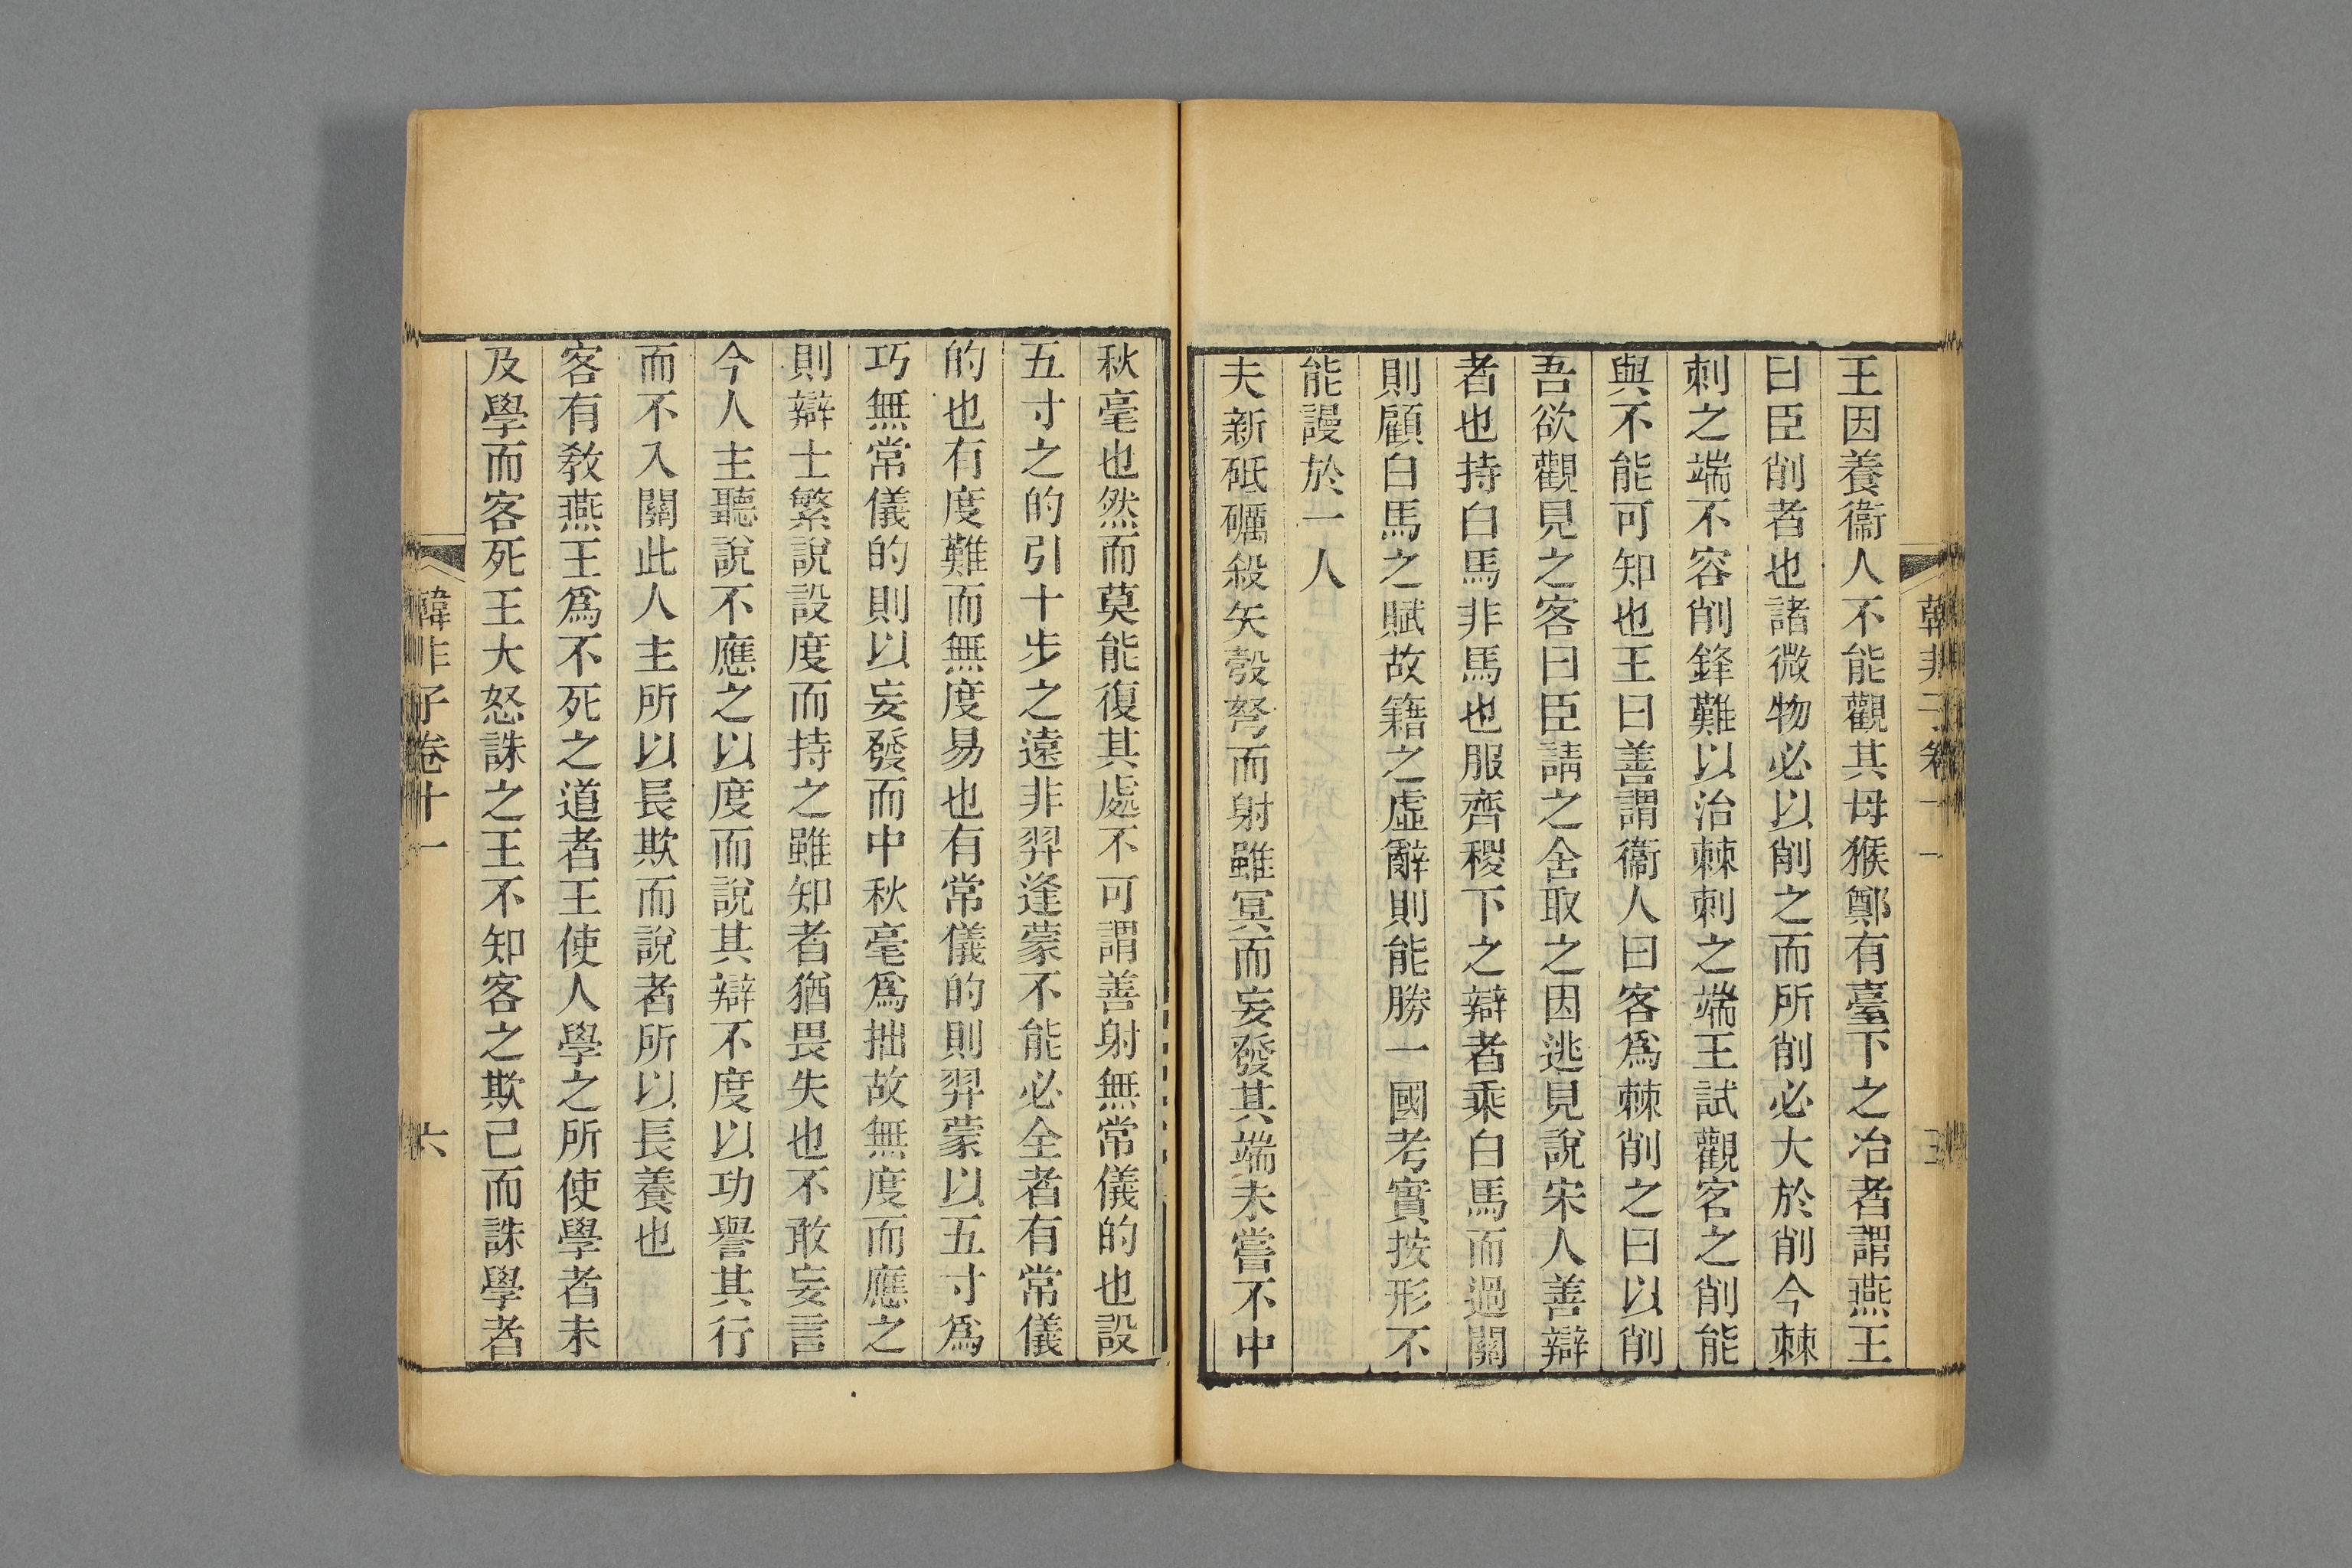 韓非子卷十一
五
王因養衞人不能觀其母猴鄭有臺下之冶者謂燕王
曰臣削者也諸微物必以削之而所削必大於削今棘
刺之端不容削鋒難以治棘刺之端王試觀客之削能
與不能可知也王曰善謂衞人曰客爲棘削之曰以削
吾欲觀見之客曰臣請之舍取之因逃見說宋人善辯
者也持白馬非馬也服齊稷下之辯者乘白馬而過關
則顧白馬之賦故籍之虛辭則能勝一國考實按形不
能謾於一人
夫新砥礪殺矢彀弩而射雖冥而妄發其端未嘗不中
秋毫也然而莫能復其處不可謂善射無常儀的也設
五寸之的引十步之遠非羿逢蒙不能必全者有常儀
的也有度難而無度易也有常儀的則羿蒙以五寸爲
巧無常儀的則以妄發而中秋毫爲拙故無度而應之
則辯士繁說設度而持之雖知者猶畏失也不敢妄言
今人主聽說不應之以度而說其辯不度以功譽其行
而不入關此人主所以長欺而說者所以長養也
客有敎燕王爲不死之道者王使人學之所使學者未
及學而客死王大怒誅之王不知客之欺己而誅學者
韓非子卷十一
六